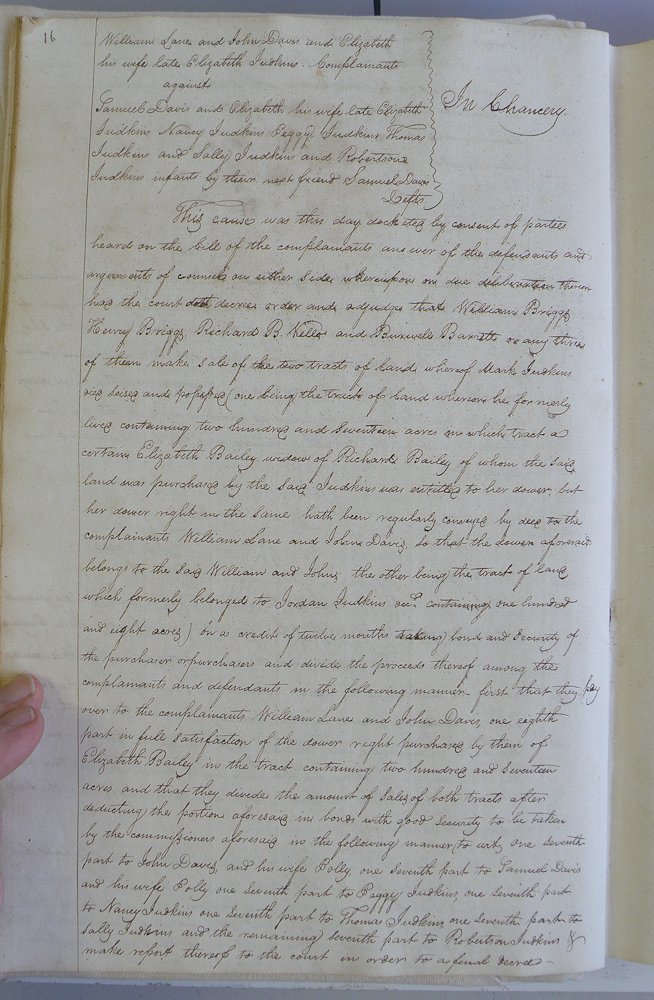 16
William Lane and John Davis and Elizabeth
his wife late Elizabeth Judkins. Complainants
against
Samuel Davis and Elizabeth his wife late Elizabeth
Judkins Nancy Judkins Peggy Judkins Thomas
Judkins and Sally Judkins and Robertson
Judkins infants by their next friend Samuel Davis
Defts
In Chancery.
This cause was this day docketed by consent of parties
heard on the bill of the complainants answer of the defendants and
arguments of counsel on either side whereupon on due deliberation thereon
had the court doth decree order and adjudge that William Briggs
Henry Briggs, Richard B. Kello and Burwell Barrett or any three
of them make sale of the two tracts of land whereof Mark Judkins
died seized and possessed (one being the tract of land whereon he formerly
lived containing two hundred and seventeen acres on which tract a
certain Elizabeth Bailey widow of Richard Bailey of whom the said
land was purchased by the said Judkins was entitled to her dower, but
her dower right in the same hath been regularly conveyed by deed to the
complainants William Lane and John Davis, so that the dower aforesaid
belongs to the said William and John; the other being the tract of land
which formerly belonged to Jordan Judkins decd. containing one hundred
and eight acres) on a credit of twelve months taking bond and security of
the purchaser or purchasers and divide the proceeds thereof among the
complainants and defendants in the following manner - first that they pay
over to the complainants William Lane and John Davis, one eighth
part in full satisfaction of the dower right purchased by them of
Elizabeth Bailey in the tract containing two hundred and seventeen
acres and that they divide the amount of sales of both tracts after
deducting the portion aforesaid in bonds with good security to be taken
by the commissioners aforesaid in the following manner, to wit, one seventh
part to John Davis, and his wife Polly, one seventh part to Samuel Davis
and his wife Polly one seventh part to Peggy Judkins, one seventh part
to Nancy Judkins one seventh part to Thomas Judkins one seventh part to
Sally Judkins and the remaining seventh part to Robertson Judkins &
make report thereof to the court in order to a final decree -